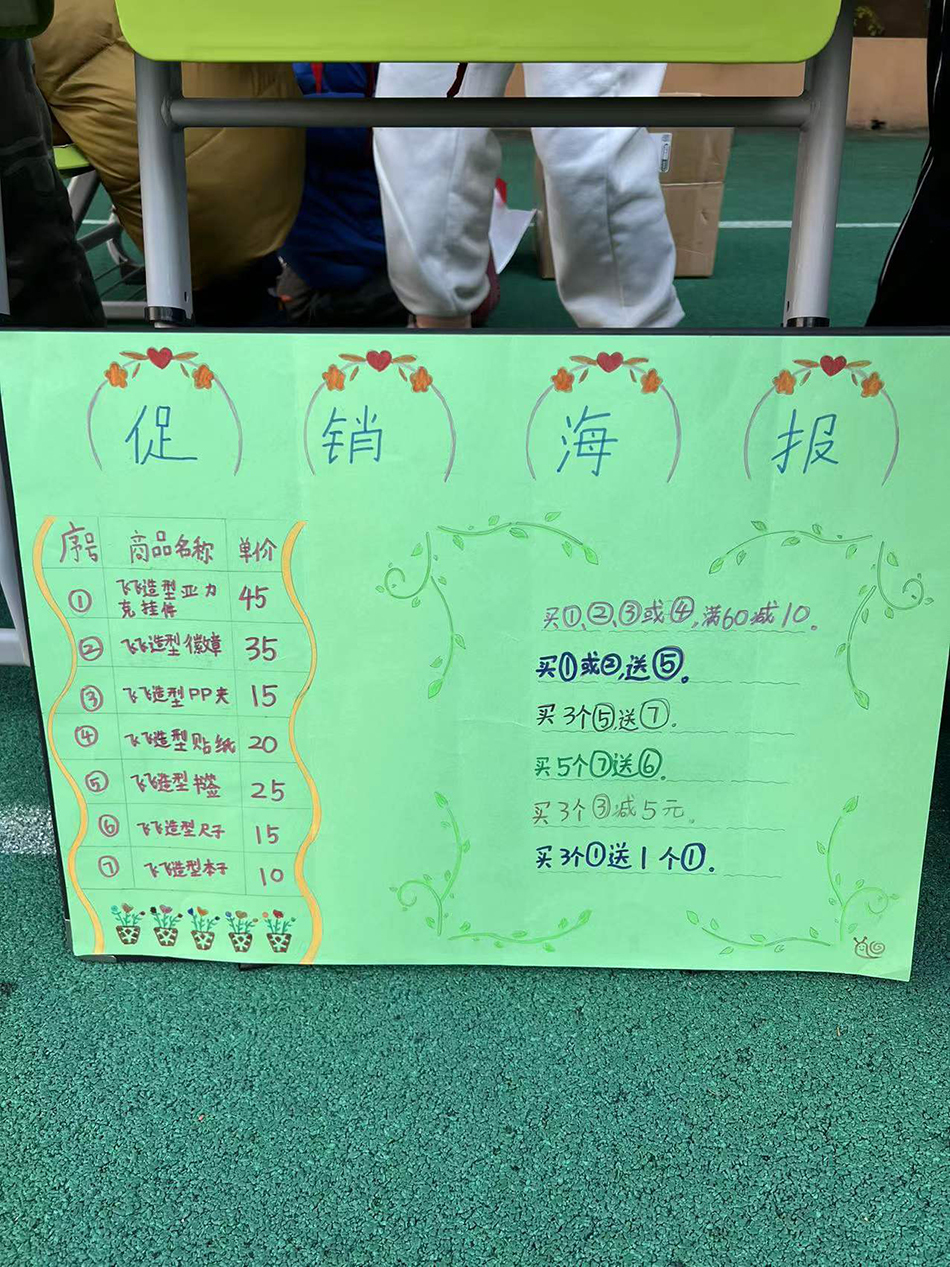 促销海报
序号 商品名称 单价
① 飞飞造型亚力克挂件 45
② 飞飞造型徽章 35
③ 飞飞造型PP夹 15
④ 飞飞造型贴纸 20
⑤ 飞飞造型书签 25
⑥ 飞飞造型尺子 15
⑦ 飞飞造型本子 10
买①、②、③或④,满60减10。
买①或②,送⑤。
买3个⑤送⑦。
买5个⑦送⑥。
买3个③减5元。
买3个①送1个①.